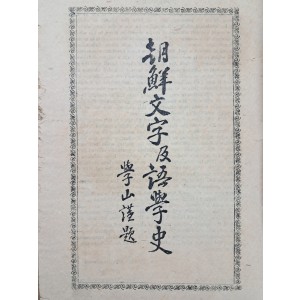 朝鮮文字及語學史
學山謹題